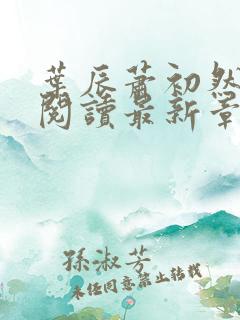 葉辰蕭初然
閱讀最新章
孫淑芳
未經同意禁止轉載